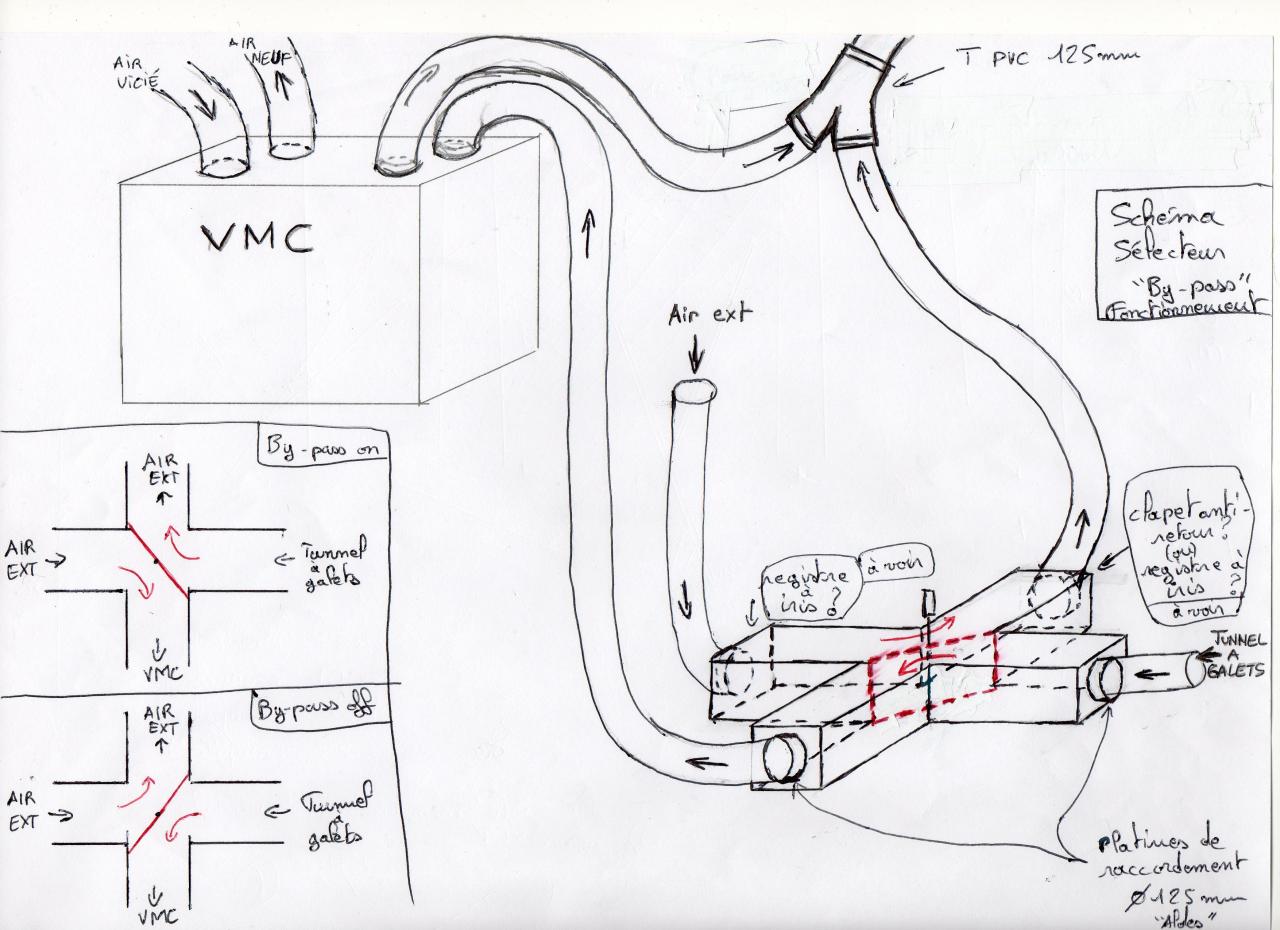 AIR
VICIÉ
AIR
NEUF
T PVC 125mm
VMC
Schéma
Sélecteur
"By-pass"
Fonctionnement
Air ext
By-pass on
AIR
EXT
AIR
EXT
Tunnel
à
galets
VMC
By-pass off
AIR
EXT
AIR
EXT
Tunnel
à
galets
VMC
registre
à
iris ?
à voir
clapet anti-
retour ?
(ou)
registre à
iris ?
à voir
TUNNEL
A
GALETS
Platines de
raccordement
Ø 125 mm
"Aldes"